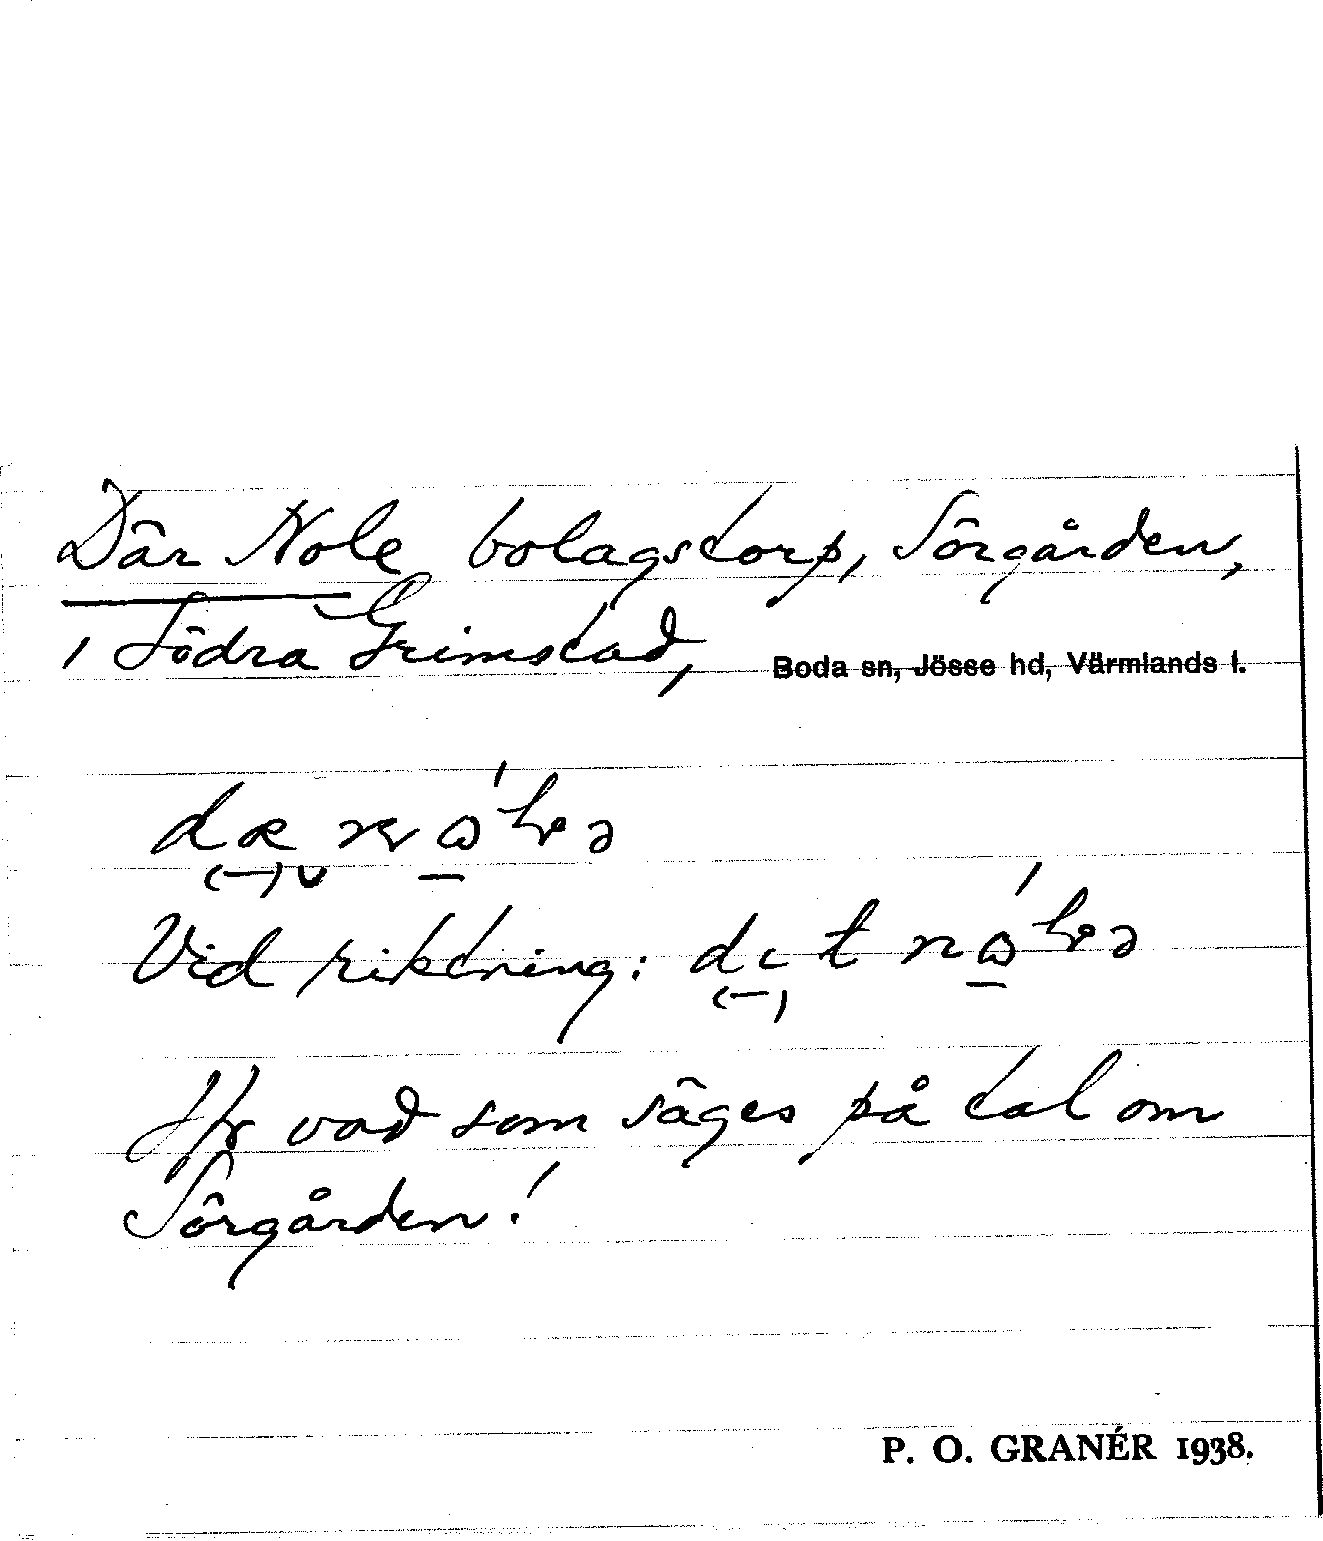 Där Nole bolagstorp, Sörgården,
i Södra Grimstad, Boda sn, Jösse hd, Värmlands l.
Vid riktning:
Jfr vad som säges på tal om
Sörgården!
P. O. GRANÉR 1938.